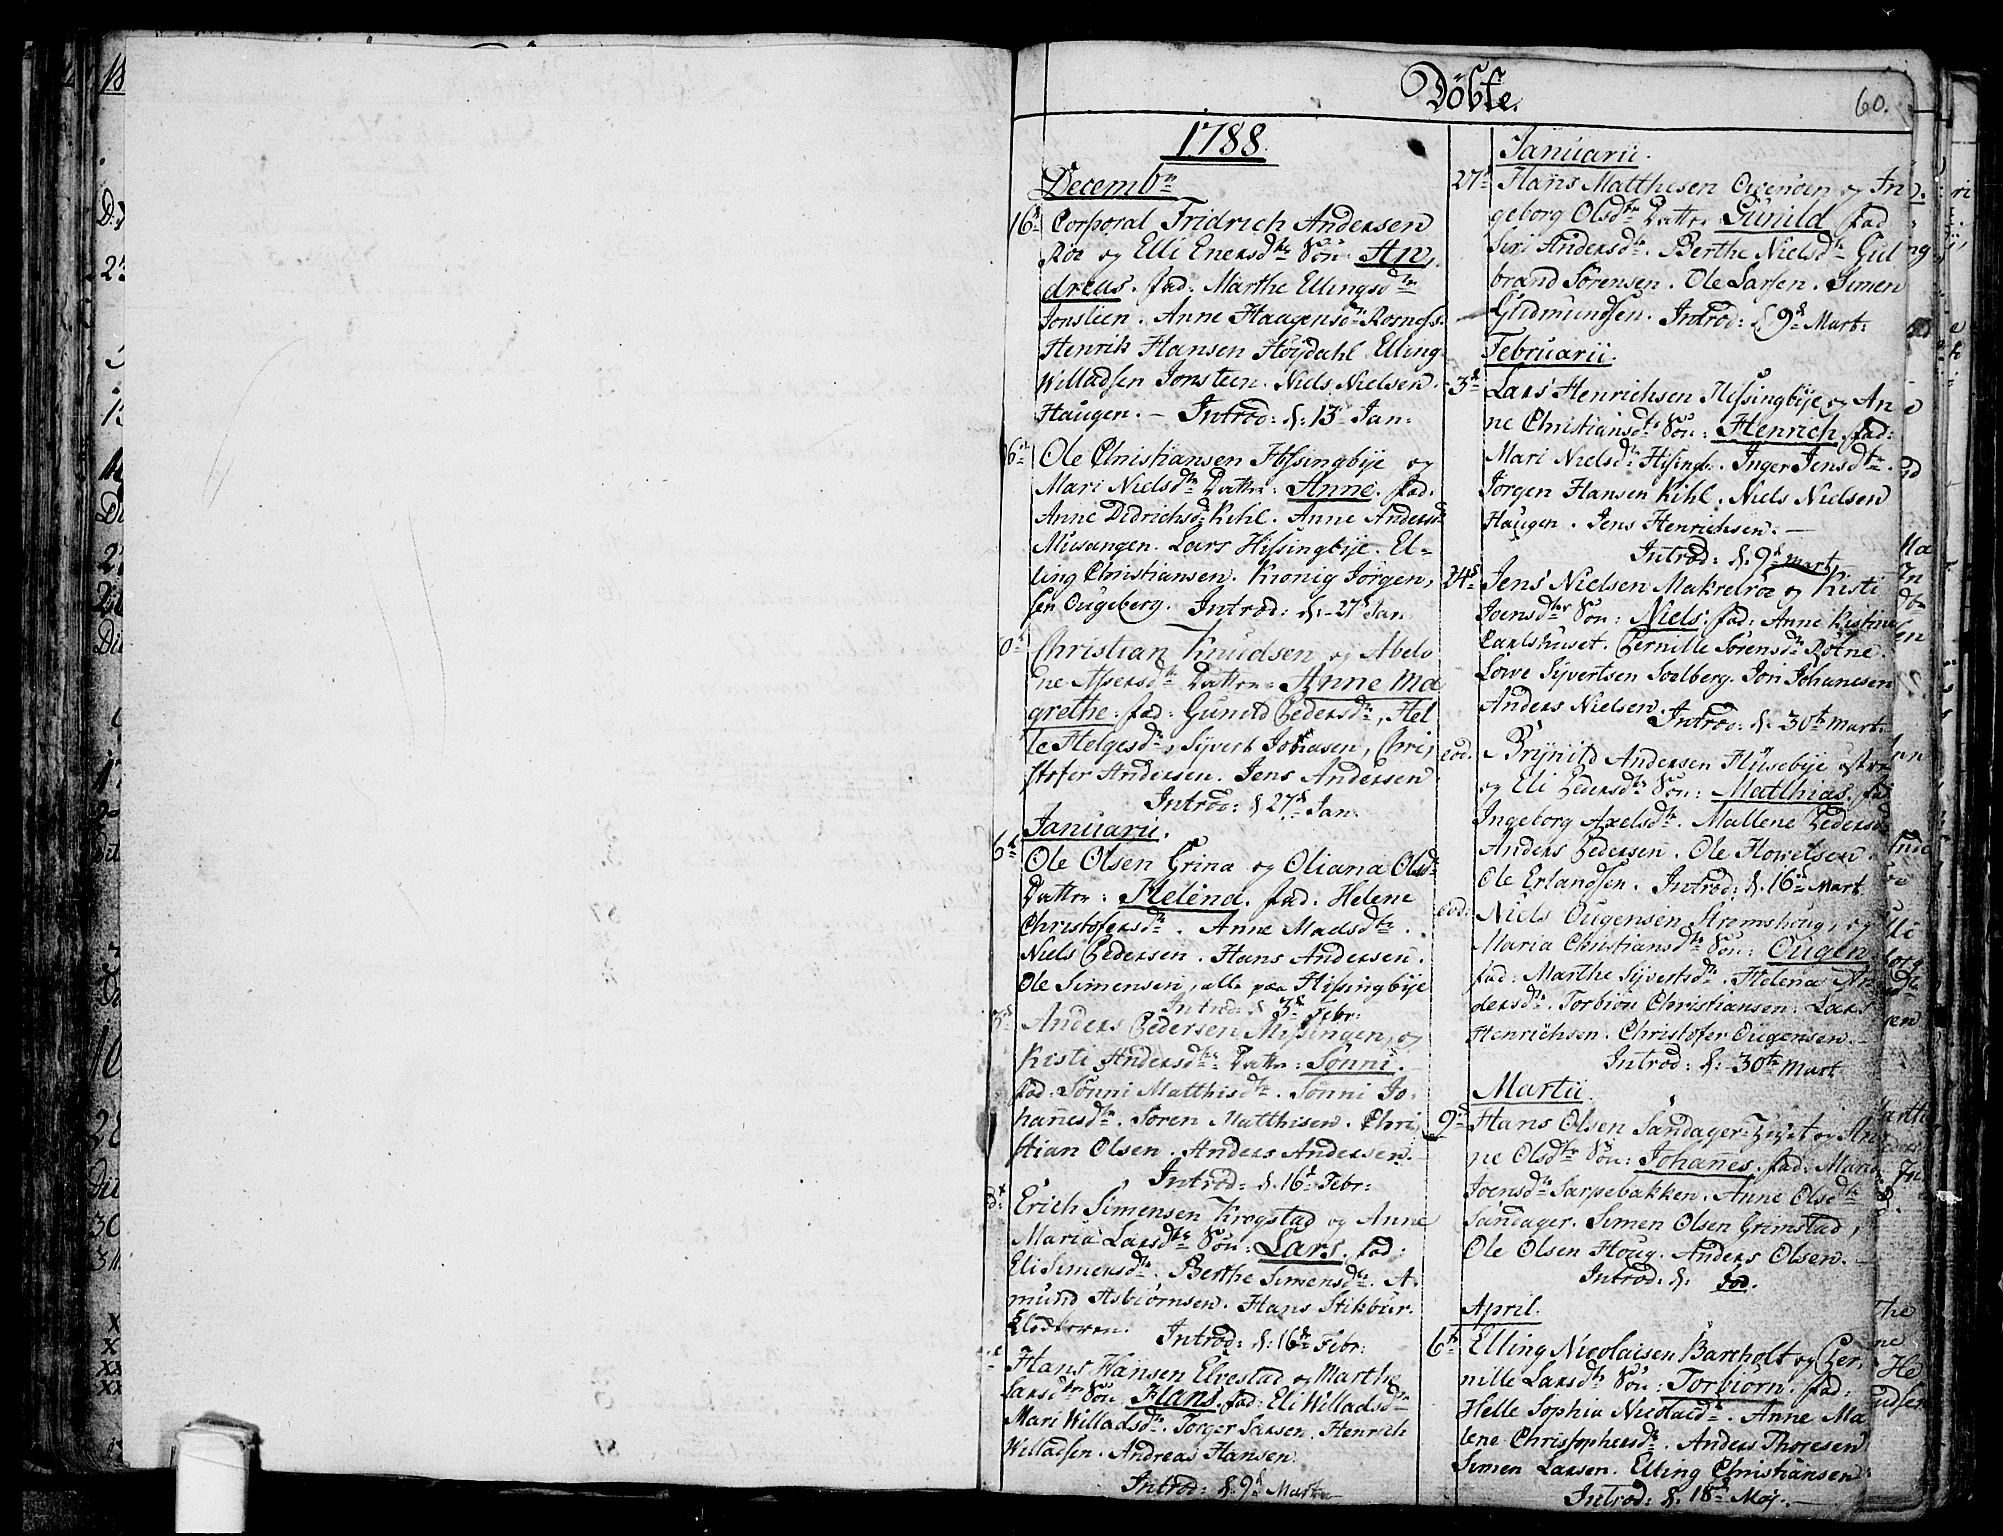 Döbte.
60.
1788.
Decembr
16d Corporal Fridrich Andersen
Roe og Elli Enersdtr Sön: An,
dreas. fad: Marthe Ellingsdtr
Jonsteen. Anne Haugensdtr Rosness.
Henrik Hansen Höjdahl. Elling
Willadsen Jonsteen. Niels Nielsen
Haugen. – Introd: d: 13d Jan:
Ole Christiansen Hissingbÿe og
Mari Nielsdtr Dattr: Anne. fad:
Anne Didrichsdtr Kihl. Anne Andersd
Musangen. Lars Hissingbÿe. El-
ling Christiansen. Kronig Jörgen,
sen Ougeberg. Introd: d: 27d Jan.
Christian Knudsen og Abelo
ne Assersdtr Dattr: Anne Ma
grethe. fad: Gunild Pedersdtr, Hel
le Helgesdtr, Sÿvert Johnsen, Chri,
stofer Andersen. Jens Andersen
Introd: d 27d Jan.
Januarii.
6d Ole Olsen Grina og Oliana Olsdtr
Dattr: Helena. fad: Helene
Christofersdtr. Anne Madsdtr.
Niels Pedersen. Hans Andersen.
Ole Simensen, alle paa Hissingbÿe
Introd: d 3d Febr:
Anders Pedersen Missingen, og
Kisti Andersdtr Dattr: Sönni.
fad: Sönni Matthisdtr. Sönni Jo-
hanesdtr. Sören Matthisen. Chri,
stian Olsen. Anders Andersen.
Introd: d: 16d Febr:
Erich Simensen Krogstad og Anne
Maria Larsdtr Sön: Lars. fad:
Eli Simensdtr. Berthe Simensdtr. A-
mund Asbiörnsen. Hans Stikbur.
Introd: d: 16d Febr:
Hans Hansen Elvestad og Marthe
Larsdtr Sön: Hans. fad: Eli Willadsdtr
Mari Willadsdtr. Torger Larsen. Henrich
Willadsen. Andreas Hansen.
Introd: d: 9d Mart.
Januarii.
27d Hans Matthisen Ougensen og In
geborg Olsdtr Dattr: Gunild fad
Siri Andersdtr. Berthe Nielsdtr Gul
brand Sörensen. Ole Larsen. Simen
Gudmundsen. Introd: d 9d Mart:
Februarii.
3d Lars Henrichsen Hissingbÿe og An
ne Christiansdtr Sön: Henrich. fad:
Mari Nielsdtr Hissingb. Inger Jensdtr.
Jörgen Hansen Kihl. Niels Nielsen
Haugen. Jens Henrichsen. –
Introd: d: 9d Mart,
24d Jens Nielsen Makrelröe og Kisti
Joensdtr Sön: Niels. fad: Anne Kistine
Carlshuset. Pernille Sörensdtr Rötne.
Lowe Sÿvertsen Soelberg. Jon Johanesen
Anders Nielsen.
Introd: d: 30te Mart.
eod. Brÿnild Andersen Husebÿe östre
og Eli Pedersdtr Sön: Matthias. fad.
Ingeborg Axelsdtr. Mallene Pedersd
Anders Pedersen. Ole Howelsen.
Ole Erlandsen. Introd: d: 16d Mart
eod: Niels Ougensen Strömshaug, og
Maria Christiansdtr Sön: Ougen
fad: Marthe Sÿvertsdtr. Helena An
dersdtr. Torbiön Christiansen. Lars
Henrichsen. Christofer Ougensen. –
Introd: d: 30te Mart
Martii.
9d Hans Olsen Sandager-Eÿet og An
ne Olsdtr Sön: Johanes. fad: Maria
Joensdtr Sarpebakken. Anne Olsdtr
Sandager. Simen Olsen Grimstad,
Ole Olsen Houg. Anders Olsen. –
Introd: d: eod.
April.
6te Elling Nicolaisen Bartholt og Per,
nille Larsdtr Sön: Torbiorn. fad:
Helle Sophia Nicolaidtr. Anne Ma
lene Christophersdtr. Anders Thoresen
Simen Larsen. Elling Christiansen
Introd: d: 18d Maj. –